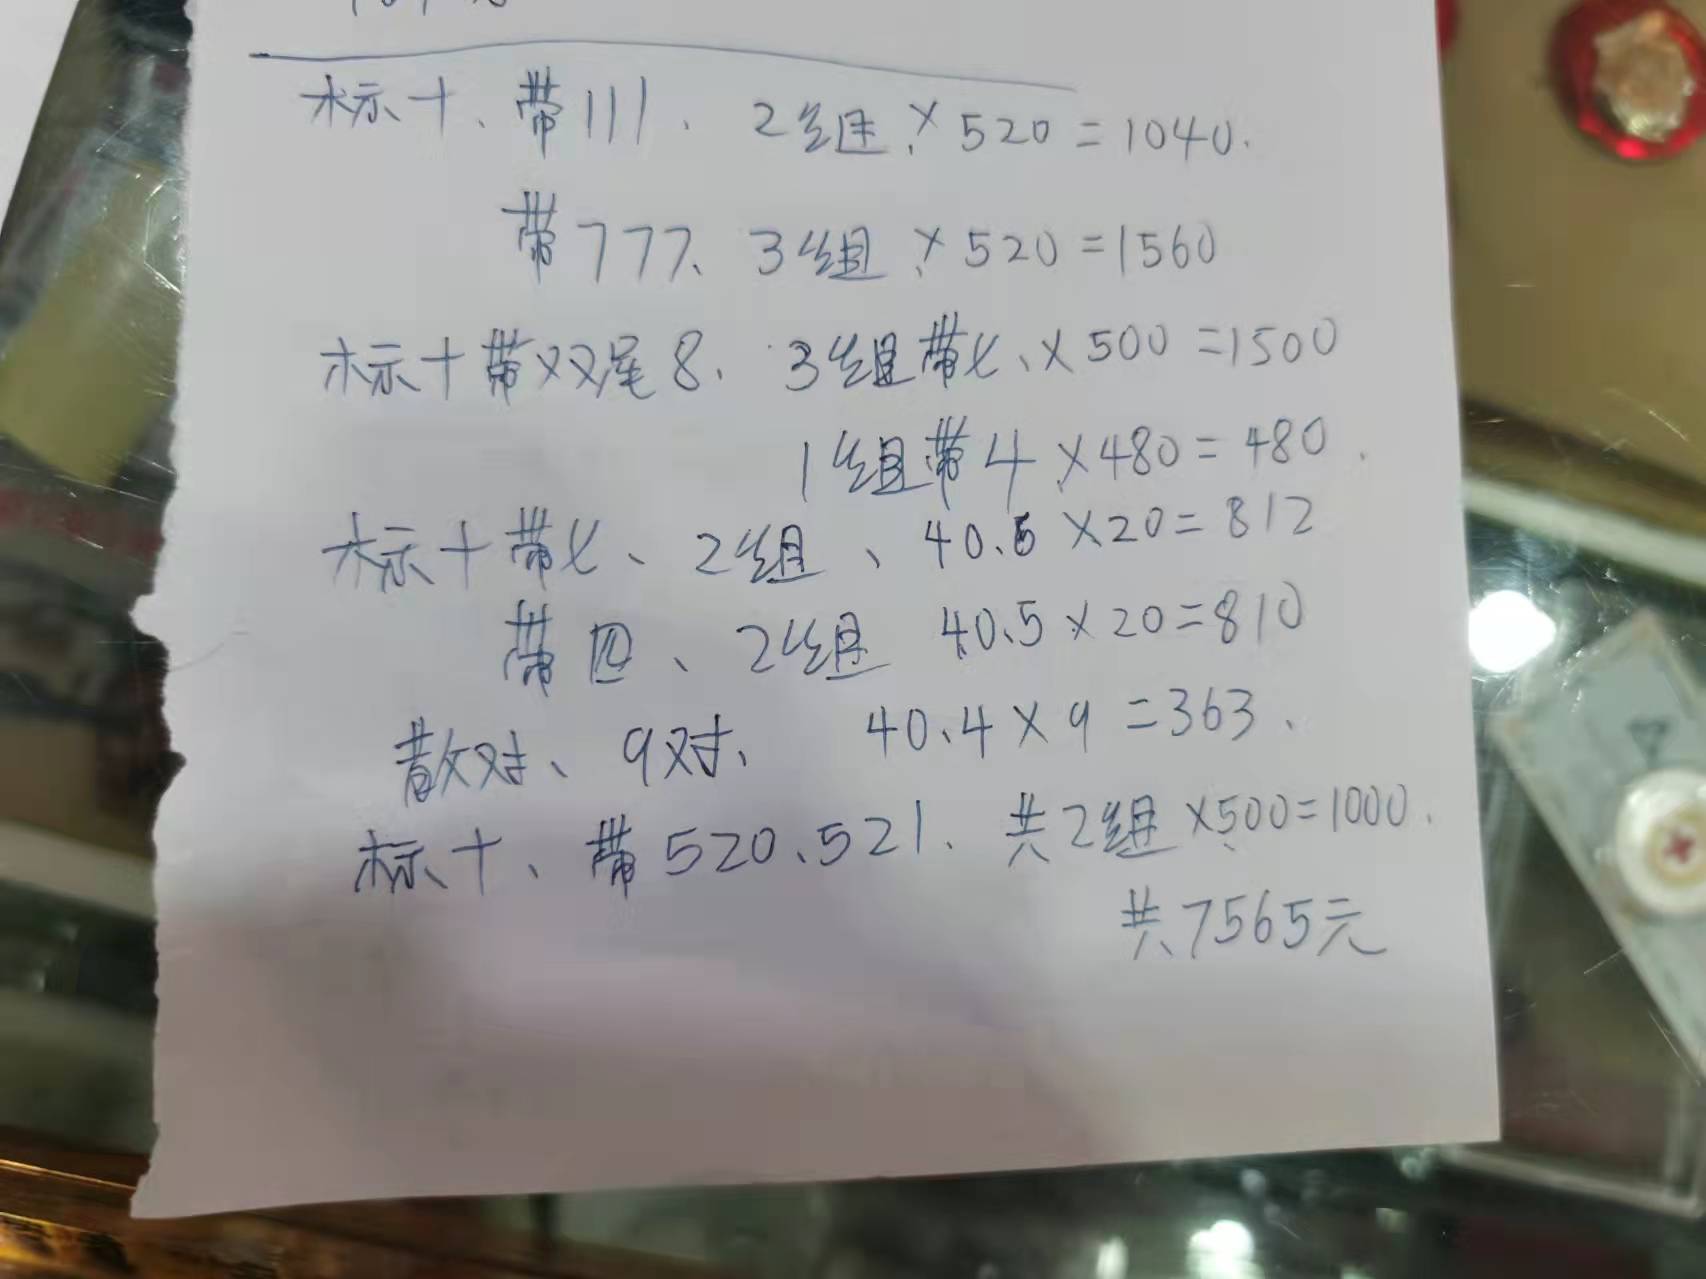 标十、带111、2组×520=1040.
带777、3组×520=1560
标十带双尾8、3组带七、×500=1500
1组带4×480=480.
标十带七、2组、40.6×20=812
带四、2组 40.5×20=810
散对、9对、 40.4×9=363、
标十、带520、521、共2组×500=1000.
共7565元